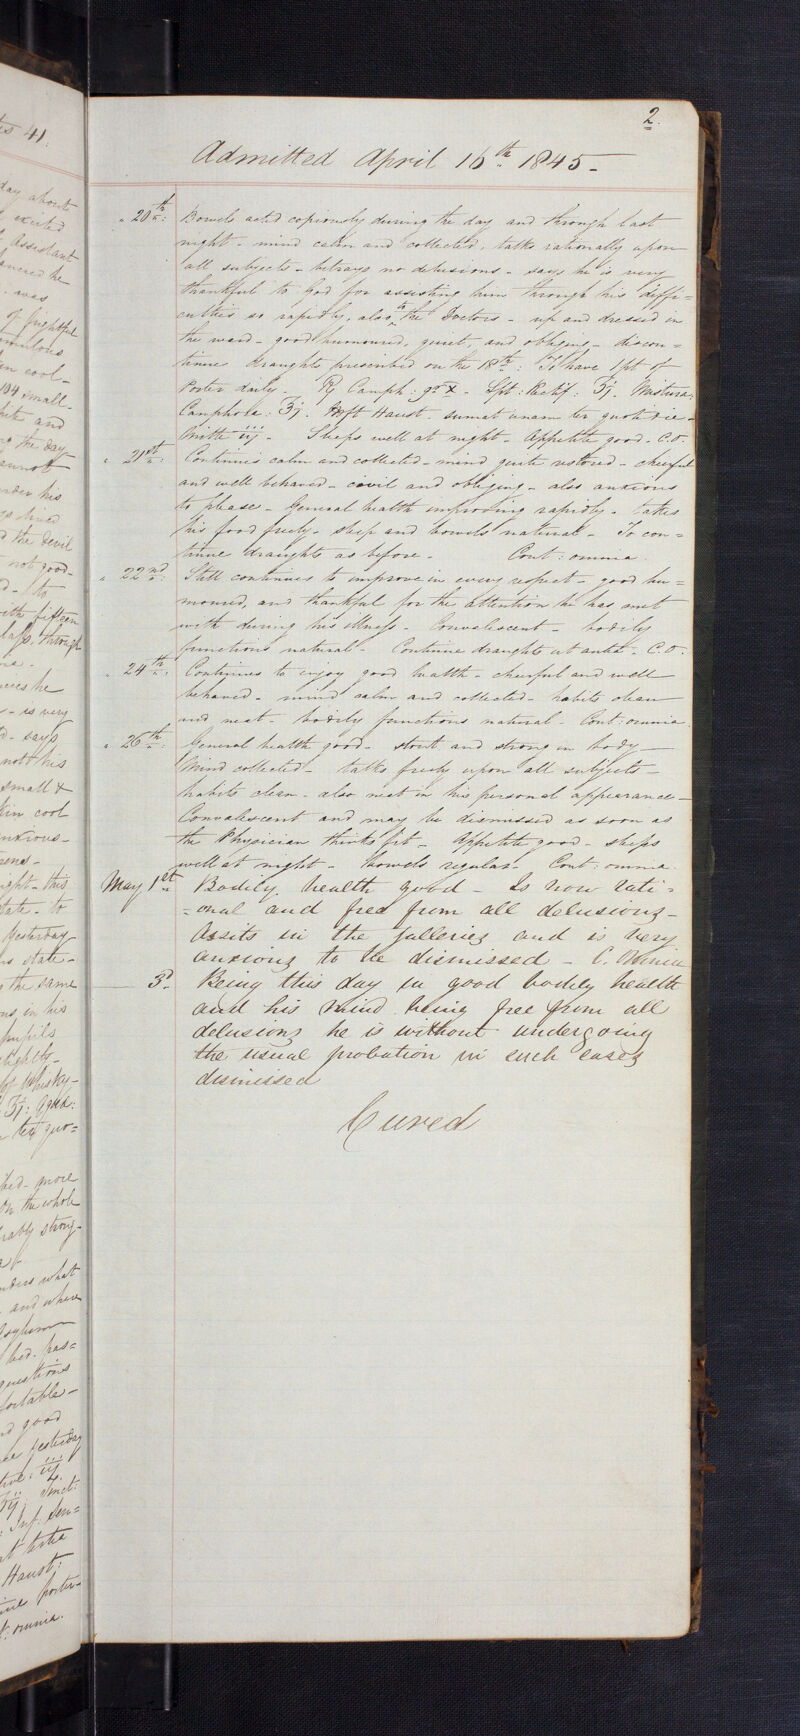 2.
Admitted April 16th 1845 -
" 20th: Bowels acted copiously during the day and through last
night - mind calm and collected, talks rationally upon
all subjects - betrays no delusions - says he is very
thankful to God for assisting him through his diffi =
culties so rapidly, also to the Doctors - up and dressed in
the ward - good humoured, quiet and obliging - discon =
tinue draughts prescribed on the 18th: To have 1pt of
Porter daily - ℞ Camph: gr X - Spt: Rectif: ʒj. Mistura:
Camphora: ℥j. ft Haust - sumat unam ter quotidie -
Mitte iij - Sleeps well at night - Appetite good - C.O.
" 21st: Continues calm and collected - mind quite restored - cheerful
and well behaved - civil and obliging - also anxious
to please - General health improving rapidly - takes
his food freely - sleep and bowels natural - To con =
tinue draughts as before - Cont: omnia.
" 22nd: Still continues to improve in every respect - good hu =
moured, and thankful for the attention he has met
with during his illness - Convalescent - bodily
functions natural - Continue draughts ut antea - C.O.
" 24th: Continues to enjoy good health - cheerful and well
behaved - mind calm and collected - habits clean
and neat - bodily functions natural - Cont: omnia
" 26th General health good - stout and strong in body -
Mind collected - talks freely upon all subjects -
habits clean - also neat in his personal appearance -
Convalescent and may be dismissed as soon as
the Physician thinks fit - Appetite good - sleeps
well at night - bowels regular - Cont: omnia.
May 1st Bodily health good - Is now rati =
= onal and free from all delusions -
Assits in the Galleries and is very
anxious to be dismissed - C. Omnia
3d. Being this day in good bodily health
and his mind being free from all
delusions he is without undergoing
the usual probation in such cases
dismissed
Cured